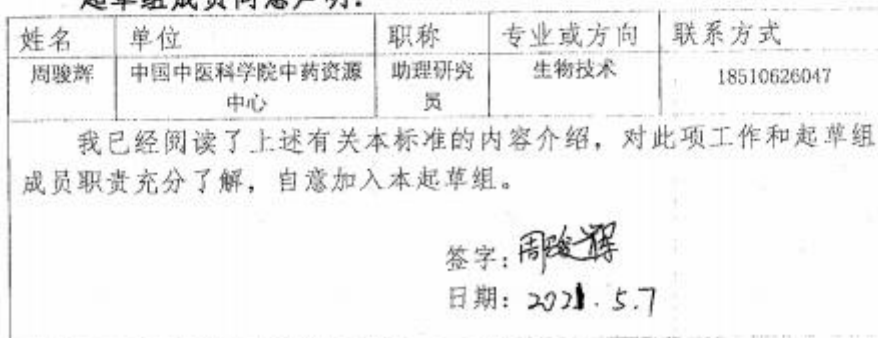 起草组成员同意声明:
姓名 单位 职称 专业或方向 联系方式
周骏辉 中国中医科学院中药资源 助理研究 生物技术 18510626047
中心 员
我已经阅读了上述有关本标准的内容介绍，对此项工作和起草组
成员职责充分了解，自意加入本起草组。
签字: 周骏辉
日期: 2021.5.7